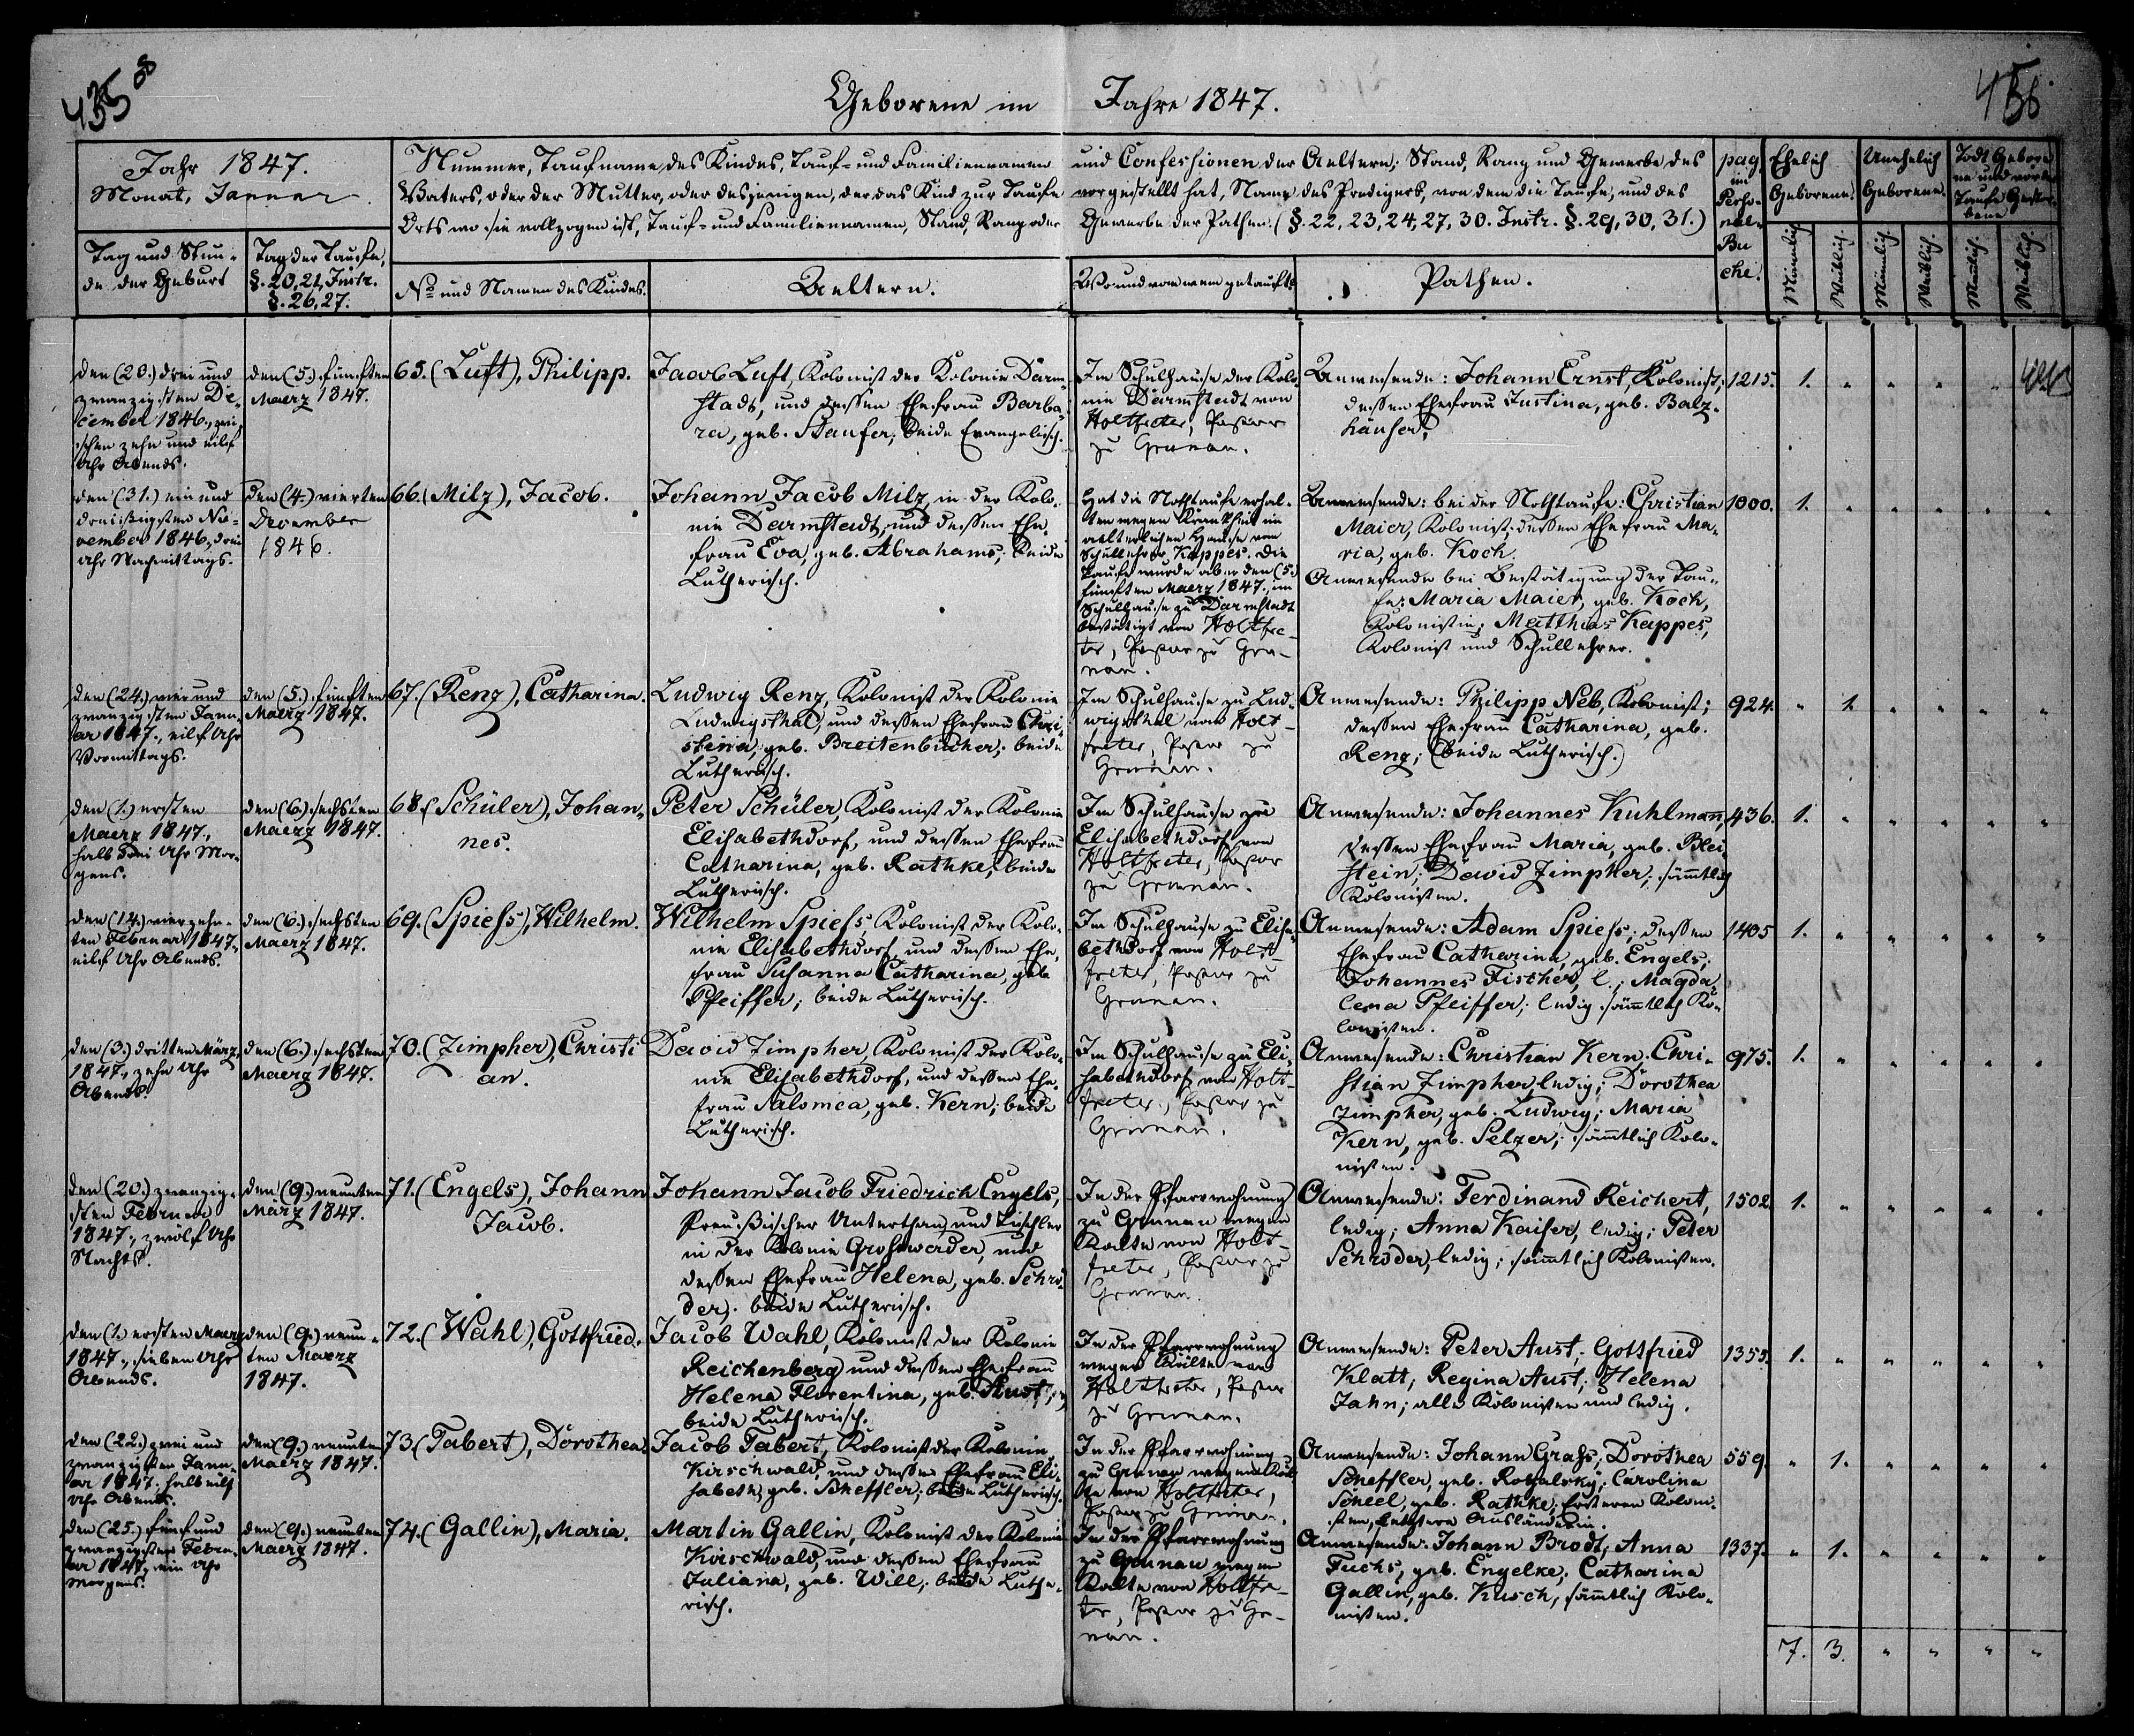 435
Geborene im Jahre 1847.
Jahr 1847.
Monat, Januar
Nummer, Taufname des Kindes, Tauf- und Familiennamen
Vaters, oder der Mutter, oder desjenigen, der das Kind zur Taufe
Orts wo sie vollzogen ist, Tauf- und Familiennamen, Stand, Rang oder
und Confessionen der Aeltern; Stand, Rang und Gewerbe des
vorgestellt hat, Name des Predigers, von dem die Taufe, und des
Gewerbe der Pathen. (§. 22, 23, 24, 27, 30. Instr. §. 29, 30, 31.)
pag.
im
Perso-
nal-
Bu
che.
Ehelich
Geborene.
Unehelich
Geborene.
Todt Gebore
ne und vor der
Taufe Gestor-
bene
Tag und Stun-
de der Geburt
Tag der Taufe,
§. 20, 21, Instr.
§. 26, 27.
No und Namen des Kindes.
Aeltern.
Wo und von wem getauft.
Pathen.
Männlich
Weiblich.
Männlich.
Weiblich.
Männlich.
Weiblich.
den (23.) drei und
zwanzigsten De-
cember 1846., zwi-
schen zehn und eilf
Uhr Abends.
den (5.) fünften
Maerz 1847.
65. (Luft), Philipp.
Jacob Luft, Kolonist der Kolonie Darm-
stadt, und dessen Ehefrau Barba-
ra, geb. Staufer; beide Evangelisch.
Im Schulhause der Kolo-
nie Darmstadt von
Holtfreter, Pastor
zu Grunau.
Anwesende: Johann Ernst, Kolonist;
dessen Ehefrau Justina, geb. Balz-
häuser.
1215. 1. " " " "
den (31.) ein und
dreißigsten No-
vember 1846., drei
Uhr Nachmittags.
den (4.) vierten
December
1846.
66. (Milz), Jacob.
Johann Jacob Milz, in der Kolo-
nie Darmstadt, und dessen Ehe-
frau Eva, geb. Abrahams; beide
Lutherisch.
Hat die Nothtaufe erhal-
ten wegen Krankheit im
aelterlichen Hause vom
Schullehrer Kappes. Die
Taufe wurde aber den (5.)
fünften Maerz 1847., im
Schulhause zu Darmstadt
bestätigt von Holtfre-
ter, Pastor zu Gru-
nau.
Anwesende: bei der Nothtaufe: Christian
Maier, Kolonist; dessen Ehefrau Ma-
ria, geb. Koch.
Anwesende bei Bestätigung der Tau-
fe: Maria Maier, geb. Koch,
Kolonistin; Matthias Kappes,
Kolonist und Schullehrer.
1000. 1. " " " " "
den (24.) vier und
zwanzigsten Janu-
ar 1847., eilf Uhr
Vormittags.
den (5.) fünften
Maerz 1847.
67. (Renz), Catharina.
Ludwig Renz, Kolonist der Kolonie
Ludwigsthal, und dessen Ehefrau Chri-
stina, geb. Breitenbücher; beide
Lutherisch.
Im Schulhause zu Lud-
wigsthal von Holt-
freter, Pastor zu
Grunau.
Anwesende: Philipp Neb, Kolonist;
dessen Ehefrau Catharina, geb.
Renz; (beide Lutherisch.)
924. " 1. " " " "
den (1.) ersten
Maerz 1847.,
halb drei Uhr Mor-
gens.
den (6.) sechsten
Maerz 1847.
68. (Schüler), Johan-
nes.
Peter Schüler, Kolonist der Kolonie
Elisabethdorf, und dessen Ehefrau
Catharina, geb. Rathke; beide
Lutherisch.
Im Schulhause zu
Elisabethdorf von
Holtfreter, Pastor
zu Grunau.
Anwesende: Johannes Kuhlman,
dessen Ehefrau Maria, geb. Blei-
stein; David Zimpher; sämtlich
Kolonisten.
436. 1. " " " " "
den (14.) vierzehn-
ten Februar 1847.,
eilf Uhr Abends.
den (6.) sechsten
Maerz 1847.
69. (Spiess), Wilhelm.
Wilhelm Spiess, Kolonist der Kolo-
nie Elisabethdorf, und dessen Ehe-
frau Susanna Catharina, geb.
Pfeiffer; beide Lutherisch.
Im Schulhause zu Elisa-
bethdorf von Holt-
freter, Pastor zu
Grunau.
Anwesende: Adam Spiess; dessen
Ehefrau Catharina, geb. Engels;
Johannes Fischer, l.; Magda-
lena Pfeiffer; ledig sämtlich Ko-
lonisten.
1405 1. " " " " "
den (3.) dritten März
1847., zehn Uhr
Abends.
den (6.) sechsten
Maerz 1847.
70. (Zimpher), Christi
an.
David Zimpher, Kolonist der Kolo-
nie Elisabethdorf, und dessen Ehe-
frau Salomea, geb. Kern; beide
Lutherisch.
Im Schulhause zu Eli-
sabethdorf von Holt-
freter, Pastor zu
Grunau.
Anwesende: Christian Kern; Chri-
stian Zimpher, ledig; Dorothea
Zimpher, geb. Ludwig; Maria
Kern, geb. Pelzer; sämtlich Kolo-
nisten.
975. 1. " " " " "
den (20.) zwanzig-
sten Februar
1847., zwölf Uhr
Nachts.
den (9.) neunten
März 1847.
71. (Engels), Johann
Jacob.
Johann Jacob Friedrich Engels,
Preußischer Unterthan und Tischler
in der Kolonie Grosswerder, und
dessen Ehefrau Helena, geb. Schrö-
der; beide Lutherisch.
In der Pfarrwohnung
zu Grunau wegen
Kälte von Holt-
freter, Pastor zu
Grunau.
Anwesende: Ferdinand Reichert,
ledig; Anna Kaiser, ledig; Peter
Schröder, ledig; sämtlich Kolonisten.
1502. 1. " " " " "
den (1.) ersten Maerz
1847., sieben Uhr
Abends.
den (9.) neun-
ten Maerz
1847.
72. (Wahl), Gottfried.
Jacob Wahl, Kolonist der Kolonie
Reichenberg und dessen Ehefrau
Helena Florentina, geb. Aust;
beide Lutherisch.
In der Pfarrwohnung
wegen Kälte von
Holtfreter, Pastor
zu Grunau.
Anwesende: Peter Aust; Gottfried
Klatt; Regina Aust; Helena
Jahn; alle Kolonisten und ledig.
1355. 1. " " " " "
den (22.) zwei und
zwanzigsten Janu-
ar 1847. halb eilf
Uhr Abends.
den (9.) neunten
Maerz 1847.
73. (Tabert), Dorothea.
Jacob Tabert, Kolonist der Kolonie
Kirschwald, und dessen Ehefrau Eli-
sabeth, geb. Scheffler; beide Lutherisch.
In der Pfarrwohnung
zu Grunau wegen Käl-
te von Holtfreter,
Pastor zu Grunau.
Anwesende: Johann Grass; Dorothea
Scheffler, geb. Rogalsky; Carolina
Scheel, geb. Rathke; Ersteren Koloni-
sten, letztere Ausländerin.
559. " 1. " " " "
den (25.) fünf und
zwanzigsten Febru-
ar 1847., ein Uhr
Morgens.
den (9.) neunten
Maerz 1847.
74. (Gallin), Maria.
Martin Gallin, Kolonist der Kolonie
Kirschwald, und dessen Ehefrau
Juliana, geb. Will; beide Luthe-
risch.
In der Pfarrwohnung
zu Grunau wegen
Kälte von Holtfre-
ter, Pastor zu Gru-
nau.
Anwesende: Johann Brodt; Anna
Fuchs, geb. Engelke; Catharina
Gallin, geb. Kusch, sämtlich Kolo-
nisten.
1337. " 1. " " " "
7. 3. " " " "